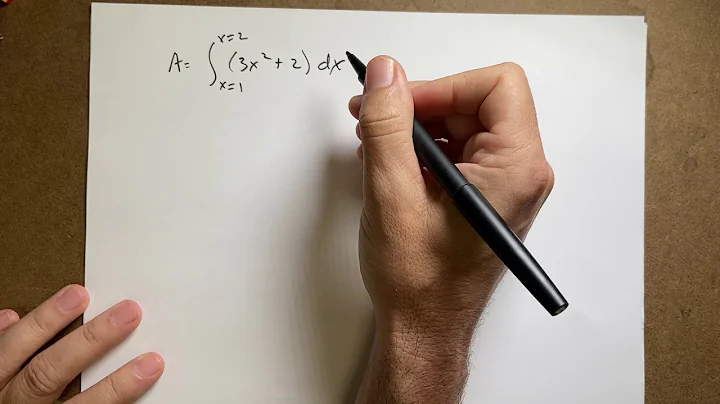 A = ∫_{x=1}^{x=2} (3x² + 2) dx